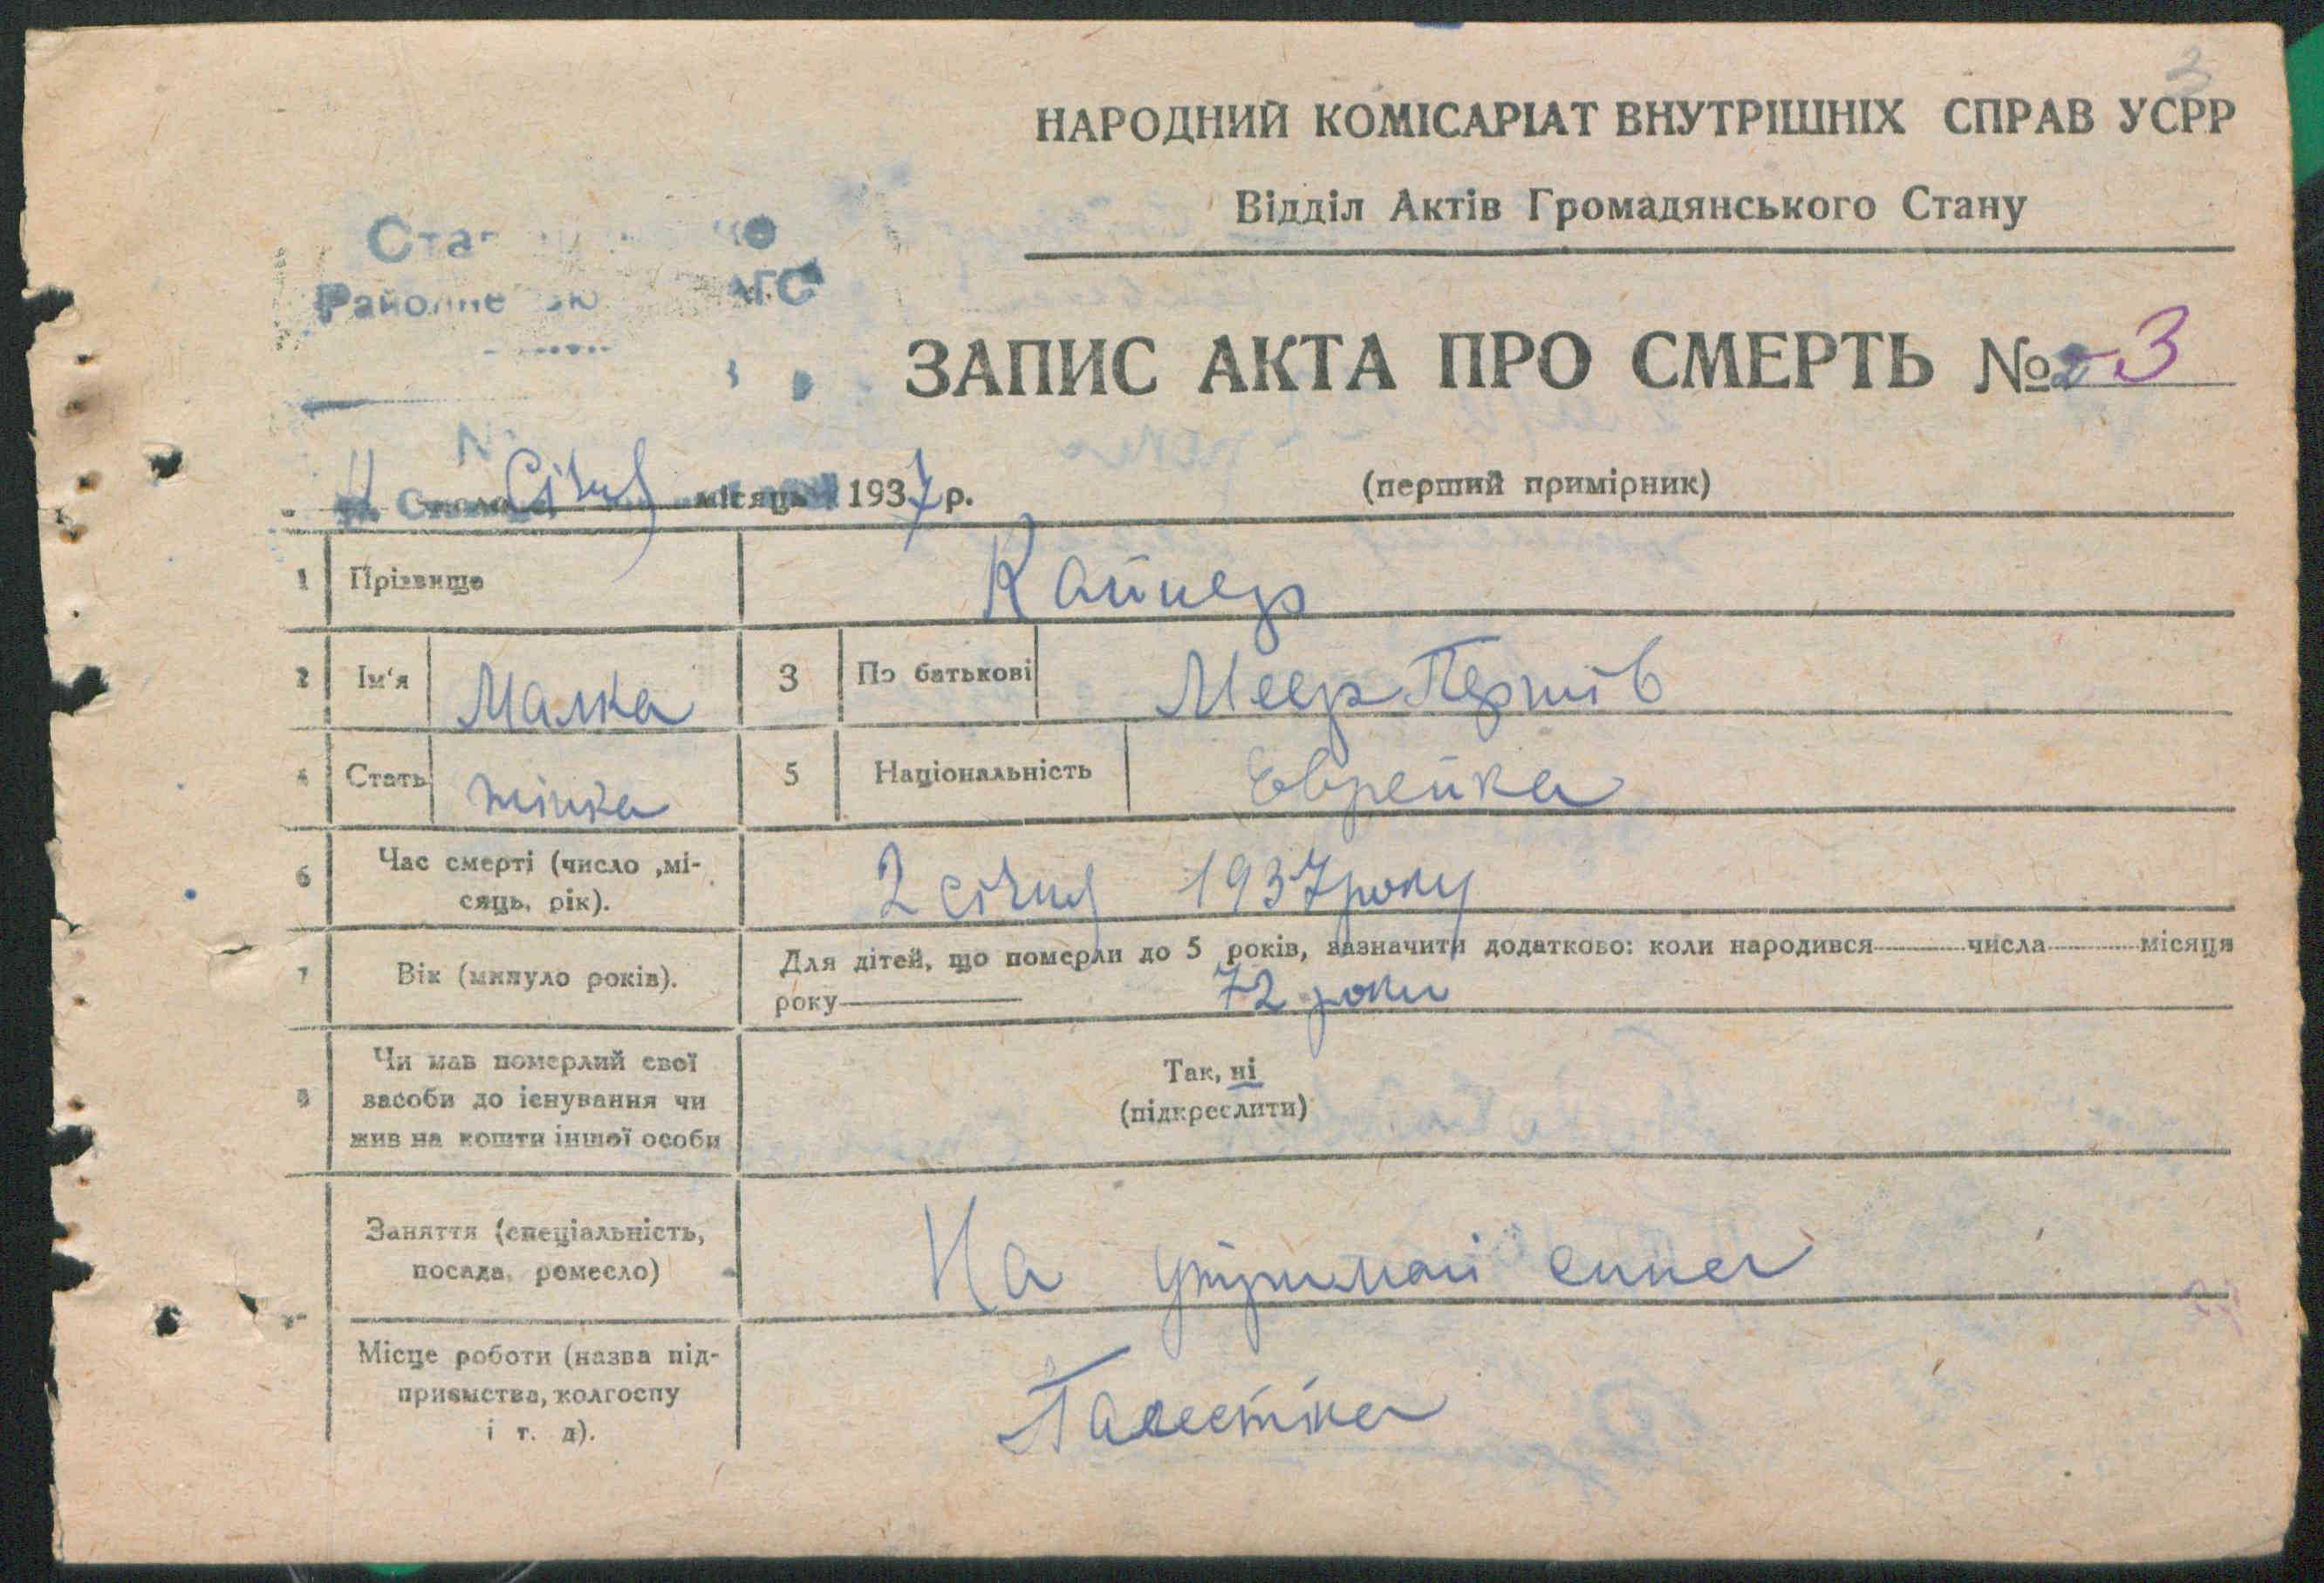 3
НАРОДНИЙ КОМІСАРІАТ ВНУТРІШНІХ СПРАВ УСРР
Відділ Актів Громадянського Стану
ЗАПИС АКТА ПРО СМЕРТЬ № 3
Січня місяць 1937 р.
(перший примірник)
1 Прізвище Кайнер
2 Ім'я Малка 3 По батькові Меер
4 Стать жінка 5 Національність Еврейка
6 Час смерті (число ,мі-
сяць, рік). 2 січня 1937 року
7 Вік (минуло років). Для дітей, що померли до 5 років, зазначити додатково: коли народився числа місяця
року 72 роки
8 Чи мав померлий свої
засоби до існування чи
жив на кошти іншої особи
Так, ні
(підкреслити)
Заняття (спеціальність,
посада, ремесло) На
Місце роботи (назва під-
приємства, колгоспу
і т. д).